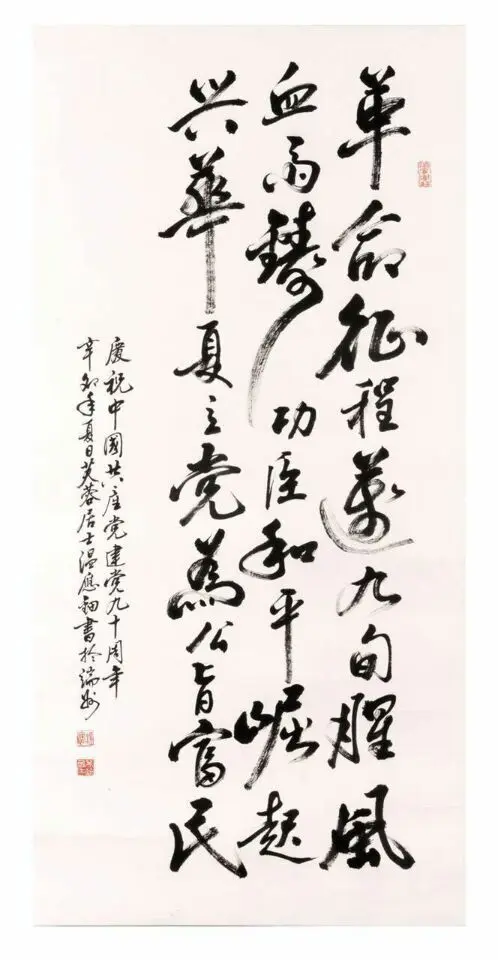 革命征程邁九旬腥風
血雨鑄功臣和平崛起
兴華夏立党為公旨富民
慶祝中國共產党建党九十周年
辛卯年夏日芙蓉居士温應書於端州